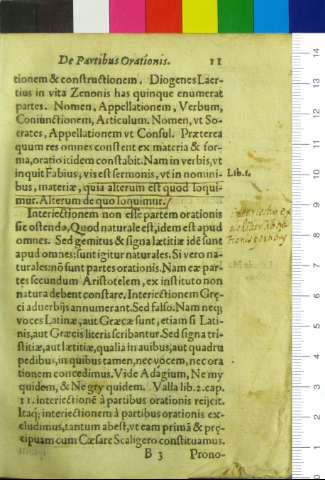 De Partibus Orationis. 11
tionem & constructionem. Diogenes Laer-
tius in vita Zenonis has quinque enumerat
partes. Nomen, Appellationem, Verbum,
Coniunctionem, Articulum. Nomen, vt So-
crates, Appellationem vt Consul. Præterea
quum res omnes constent ex materia & for-
ma, oratio itidem constabit. Nam in verbis, vt
inquit Fabius, vis est sermonis, vt in nomini- Lib.1.
bus, materiæ, quia alterum est quod loqui-
mur. Alterum de quo loquimur.
Interiectionem non esse partem orationis
sic ostendo, Quod naturale est, idem est apud
omnes. Sed gemitus & signa lætitiæ idē sunt
apud omnes: sunt igitur naturales. Si vero na-
turales: nō sunt partes orationis. Nam eæ par-
tes secundum Aristotelem, ex instituto non
natura debent constare. Interiectionem Gręci
aduerbijs annumerant. Sed falso. Nam neq;
voces Latinæ, aut Græcæ sunt, etiam si Lati-
nis, aut Græcis literis scribantur. Sed signa tri-
stitiæ, aut lætitiæ, qualia in auibus, aut quadru
pedibus, in quibus tamen, nec vocem, nec ora
tionem concedimus. Vide Adagium, Ne my
quidem, & Ne gry quidem. Valla lib.2.cap.
11. interiectionē à partibus orationis reijcit.
Itaq; interiectionem à partibus orationis ex-
cludimus, tantum abest, vt eam primā & prę-
cipuam cum Cæsare Scaligero constituamus.
B 3 Prono-
14
13
12
11
10
9
8
7
6
5
4
3
2
1
0